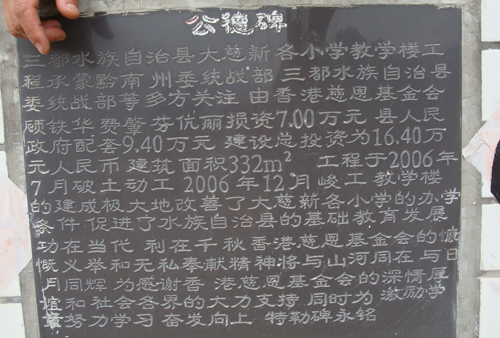 公德碑
三都水族自治县大慈新各小学教学楼工
程承蒙黔南州委统战部 三都水族自治县
委统战部等多方关注 由香港慈恩基金会
顾铁华费肇芬伉俪损资7.00万元 县人民
政府配套9.40万元 建设总投资为16.40万
元人民币 建筑面积332m² 工程于2006年
7月破土动工 2006年12月峻工 教学楼
的建成极大地改善了大慈新各小学的办学
条件 促进了水族自治县的基础教育发展
功在当代 利在千秋香港慈恩基金会的慷
慨义举和无私奉献精神将与山河同在与日
月同辉 为感谢香港慈恩基金会的深情厚
谊和社会各界的大力支持 同时为激励学
童努力学习 奋发向上 特勒碑永铭